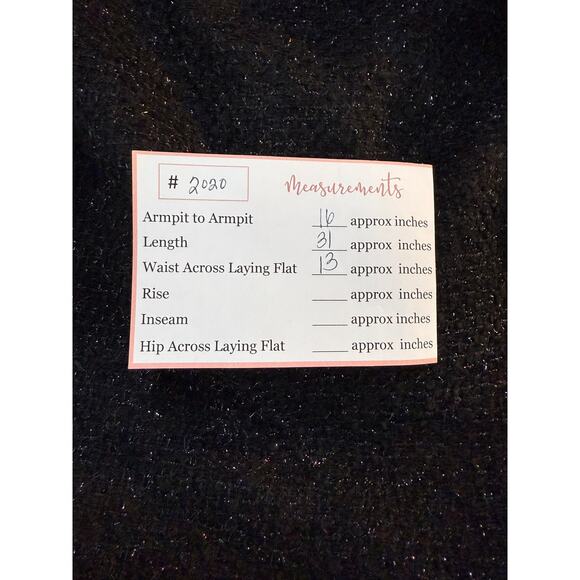 # 2020
Measurements
Armpit to Armpit 16 approx inches
Length 31 approx inches
Waist Across Laying Flat 13 approx inches
Rise ____ approx inches
Inseam ____ approx inches
Hip Across Laying Flat ____ approx inches